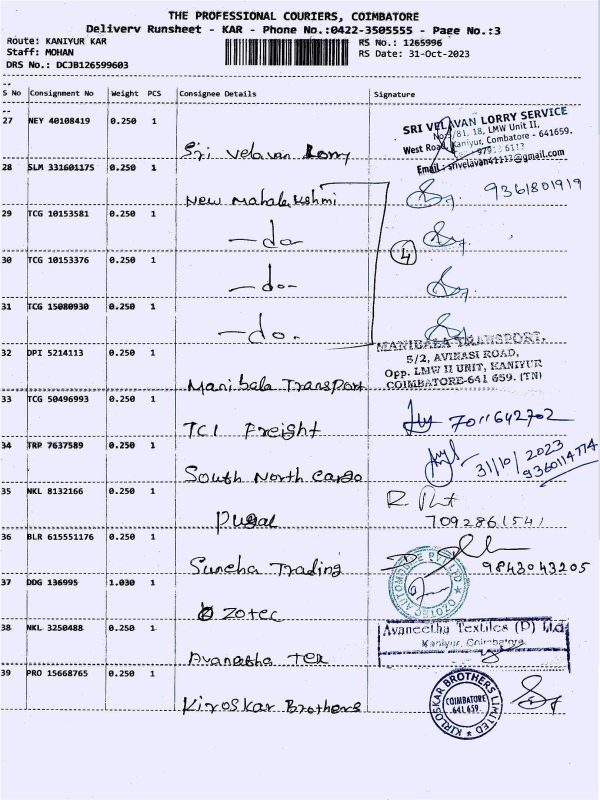 THE PROFESSIONAL COURIERS, COIMBATORE
Delivery Runsheet - KAR - Phone No.:0422-3505555 - Page No.:3
Route: KANIYUR KAR RS No.: 1265996
Staff: MOHAN RS Date: 31-Oct-2023
DRS No.: DCJB126599603
S No Consignment No Weight PCS Consignee Details Signature
27 NEY 40108419 0.250 1
SRI VELAVAN LORRY SERVICE
18, LMW Unit II,
West Road, Kaniyur, Coimbatore - 641659.
Sri Velavan Lorry
Email : srivelavan41113@gmail.com
28 SLM 331601175 0.250 1
New Mahalakshmi 9361801919
29 TCG 10153581 0.250 1
-do- 4
30 TCG 10153376 0.250 1
-do-
31 TCG 15080930 0.250 1
-do-
MANIBALA TRANSPORT,
32 DPI 5214113 0.250 1
5/2, AVINASI ROAD,
Opp. LMW II UNIT, KANIYUR
COIMBATORE-641 659. (TN)
Manibala Transport
33 TCG 50496993 0.250 1
7011642702
TCI Freight
34 TRP 7637589 0.250 1
31/10/2023
9360114774
South North Cargo
35 NKL 8132166 0.250 1
Pugal 7092861541
36 BLR 615551176 0.250 1
Suncha Trading 9843043205
37 DDG 136995 1.030 1
OZOTEC AUTOMOBILE PVT LTD
Ozotec
38 NKL 3250488 0.250 1
Avaneetha Textiles (P) Ltd
Kaniyur, Coimbatore
Avanetha Tex
39 PRO 15668765 0.250 1
KIRLOSKAR BROTHERS LIMITED
COIMBATORE
641 659.
Kiroskar Brothers